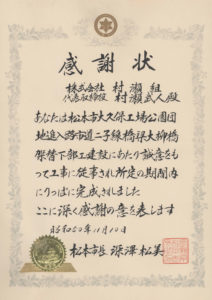 感謝状
株式会社 村瀬組
代表取締役 村瀬武人殿
あなたは松本市大久保工場公園団
地進入路市道二子線橋梁大柳橋
架替下部工建設にあたり誠意をも
って工事に従事され所定の期間内
にりっぱに完成されました
ここに深く感謝の意を表します
昭和50年11月10日
松本市長 深澤松美